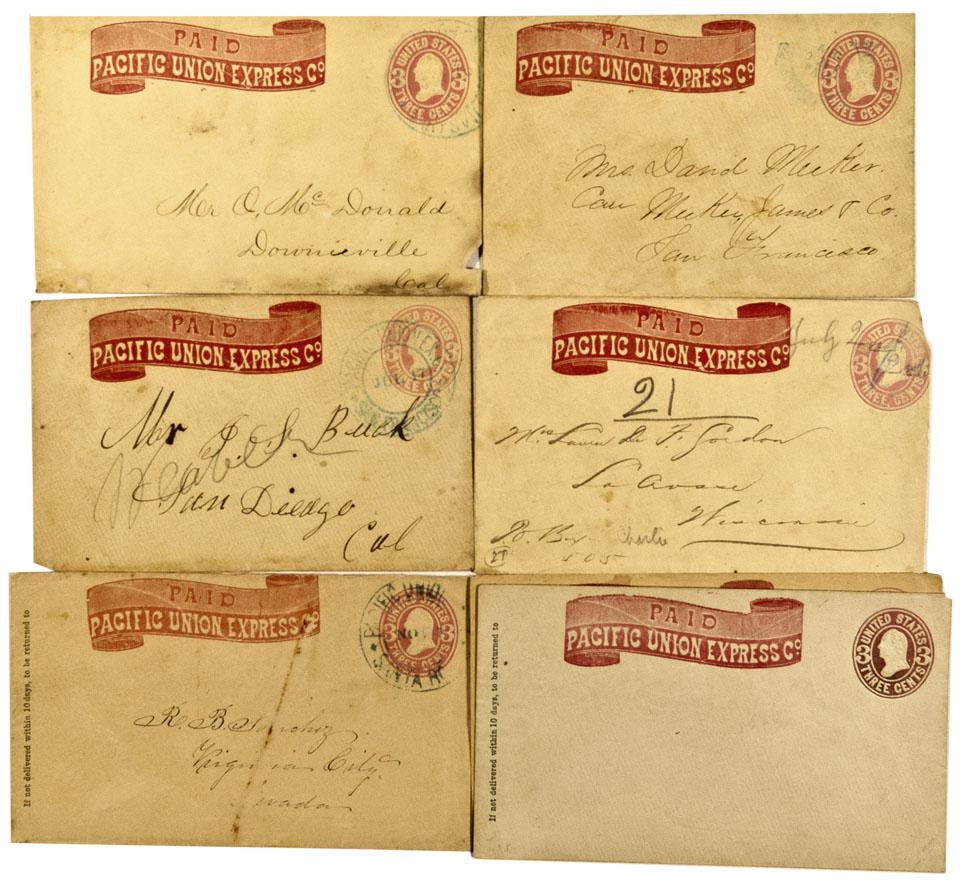 PAID
PACIFIC UNION EXPRESS Co
UNITED STATES
3 3
THREE CENTS
Mr O, Mc Donald
Downieville
Cal
PAID
PACIFIC UNION EXPRESS Co
UNITED STATES
3 3
THREE CENTS
Mrs. David Meeker.
Care Meeker, James & Co.
San Francisco.
PAID
PACIFIC UNION EXPRESS Co
3 3
THREE CENTS
Mr J. S. Buck
San Dieago
Cal
PAID
PACIFIC UNION EXPRESS Co
July 2
UNITED STATES
3 3
THREE CENTS
21
Mrs Laura De F. Gordon
La Crosse,
Wisconsin
P.O. Box Charlie
505
27
PAID
PACIFIC UNION EXPRESS
UNION
NOV
SANTA
UNITED STATES
3 3
THREE CENTS
If not delivered within 10 days, to be returned to
R. B. Sanchez
Virginia City
Nevada
PAID
PACIFIC UNION EXPRESS Co
UNITED STATES
3 3
THREE CENTS
If not delivered within 10 days, to be returned to